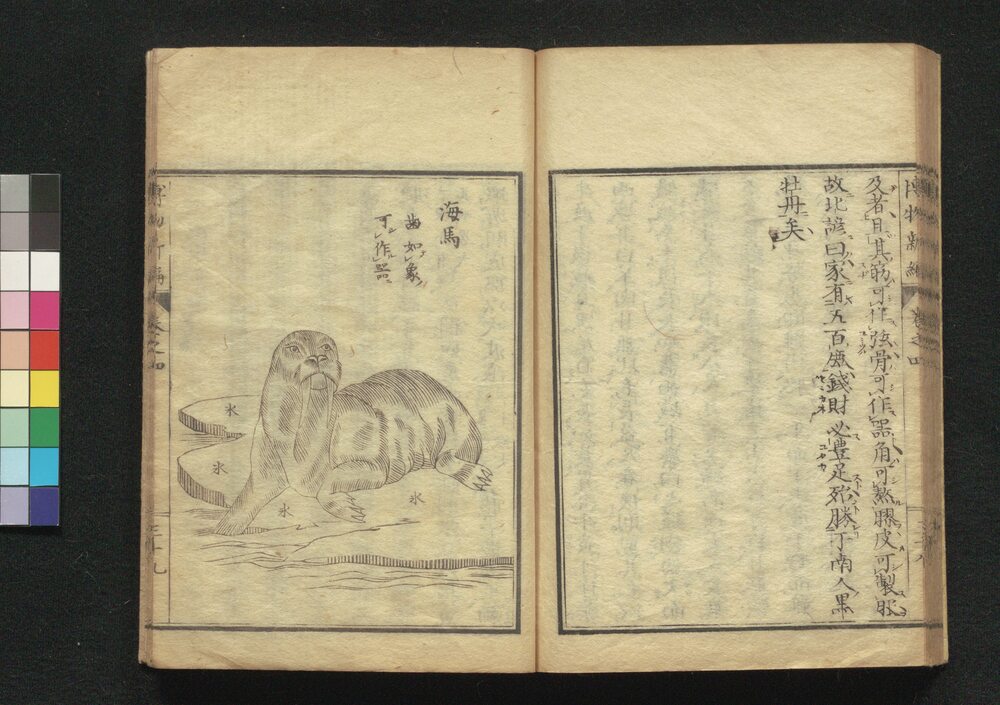 博物新編 巻之四
及者且其筋可作弦骨可作器角可熬膠皮可製服
故北諺曰家有五百鹿錢財必豊足殆勝于南人黒
牡丹矣
海馬
歯如象
可作器
氷
氷
氷
氷
巻之四 三十九